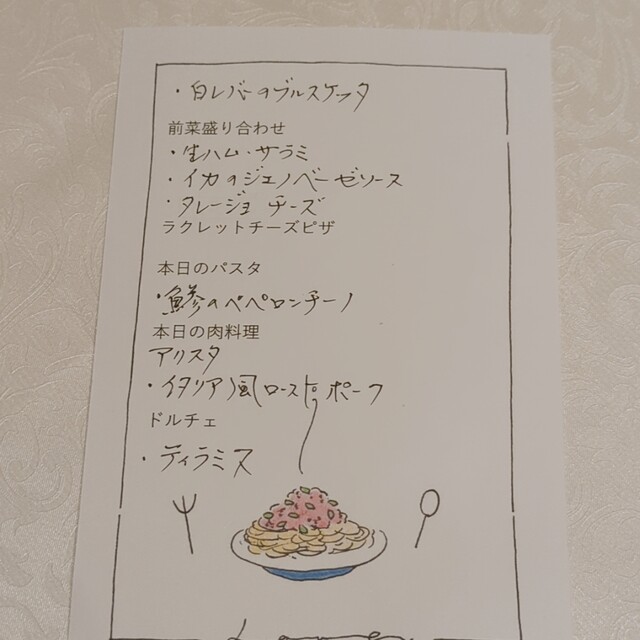 ・白レバーのブルスケッタ
前菜盛り合わせ
・生ハム・サラミ
・イカのジェノベーゼソース
・タレージョ チーズ
ラクレットチーズピザ
本日のパスタ
・鯵のペペロンチーノ
本日の肉料理
アリスタ
・イタリア風ローストポーク
ドルチェ
・ティラミス